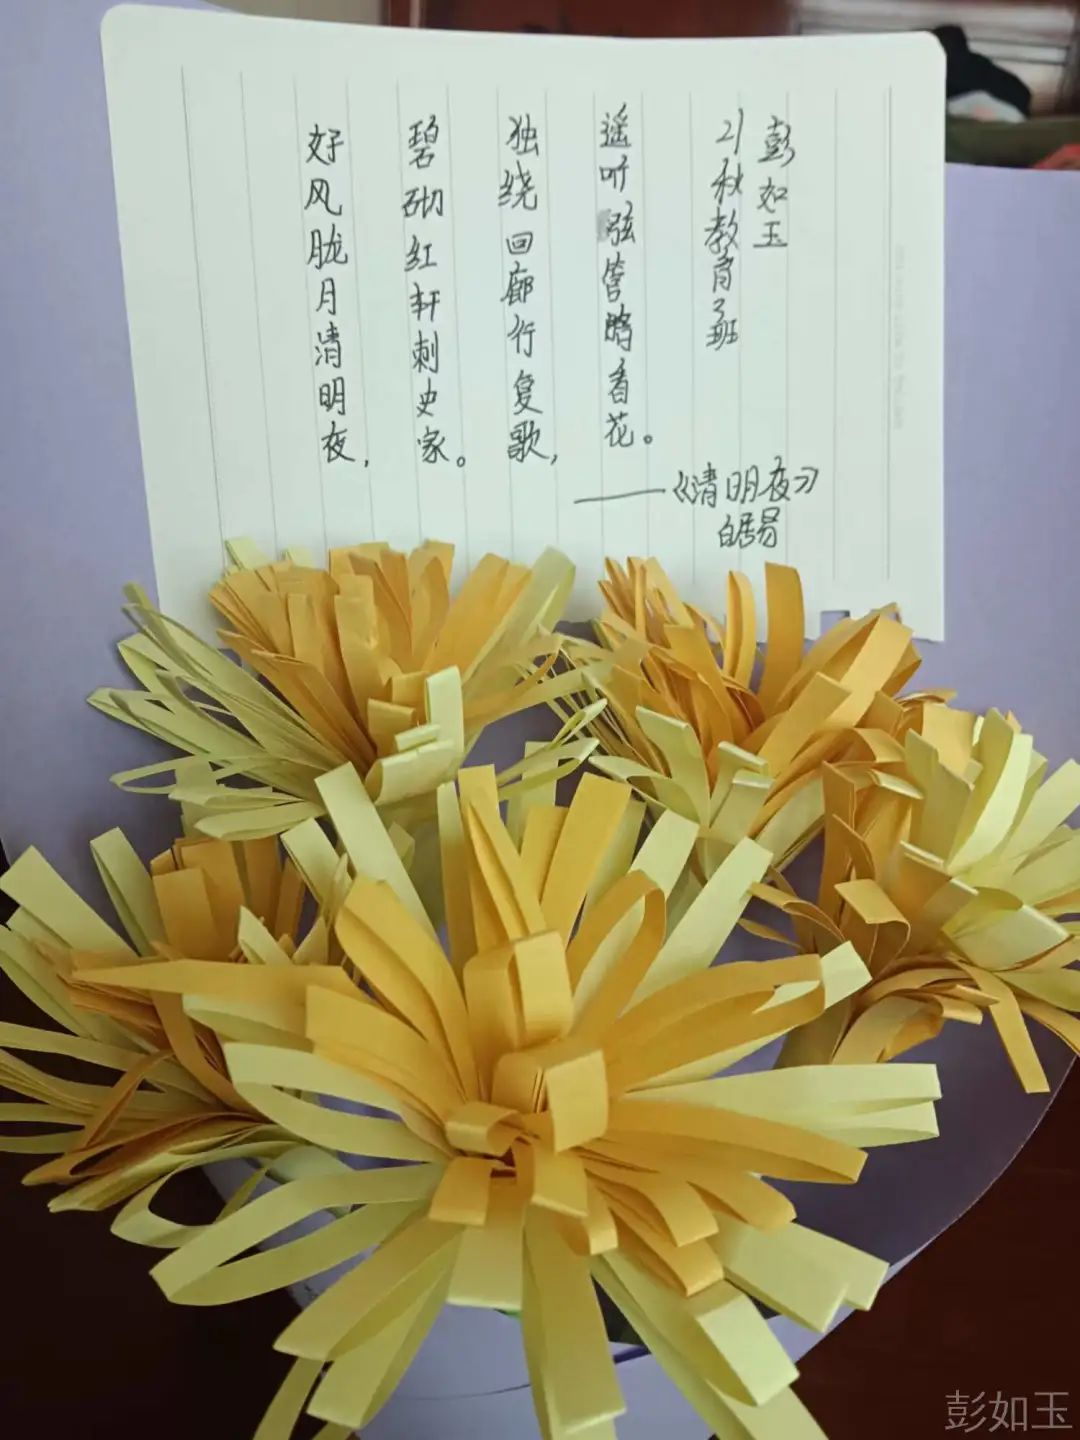 好风胧月清明夜，
碧砌红轩刺史家。
独绕回廊行复歌，
遥听弦管暗看花。
——《清明夜》
白居易
21秋教育2班
彭如玉
彭如玉